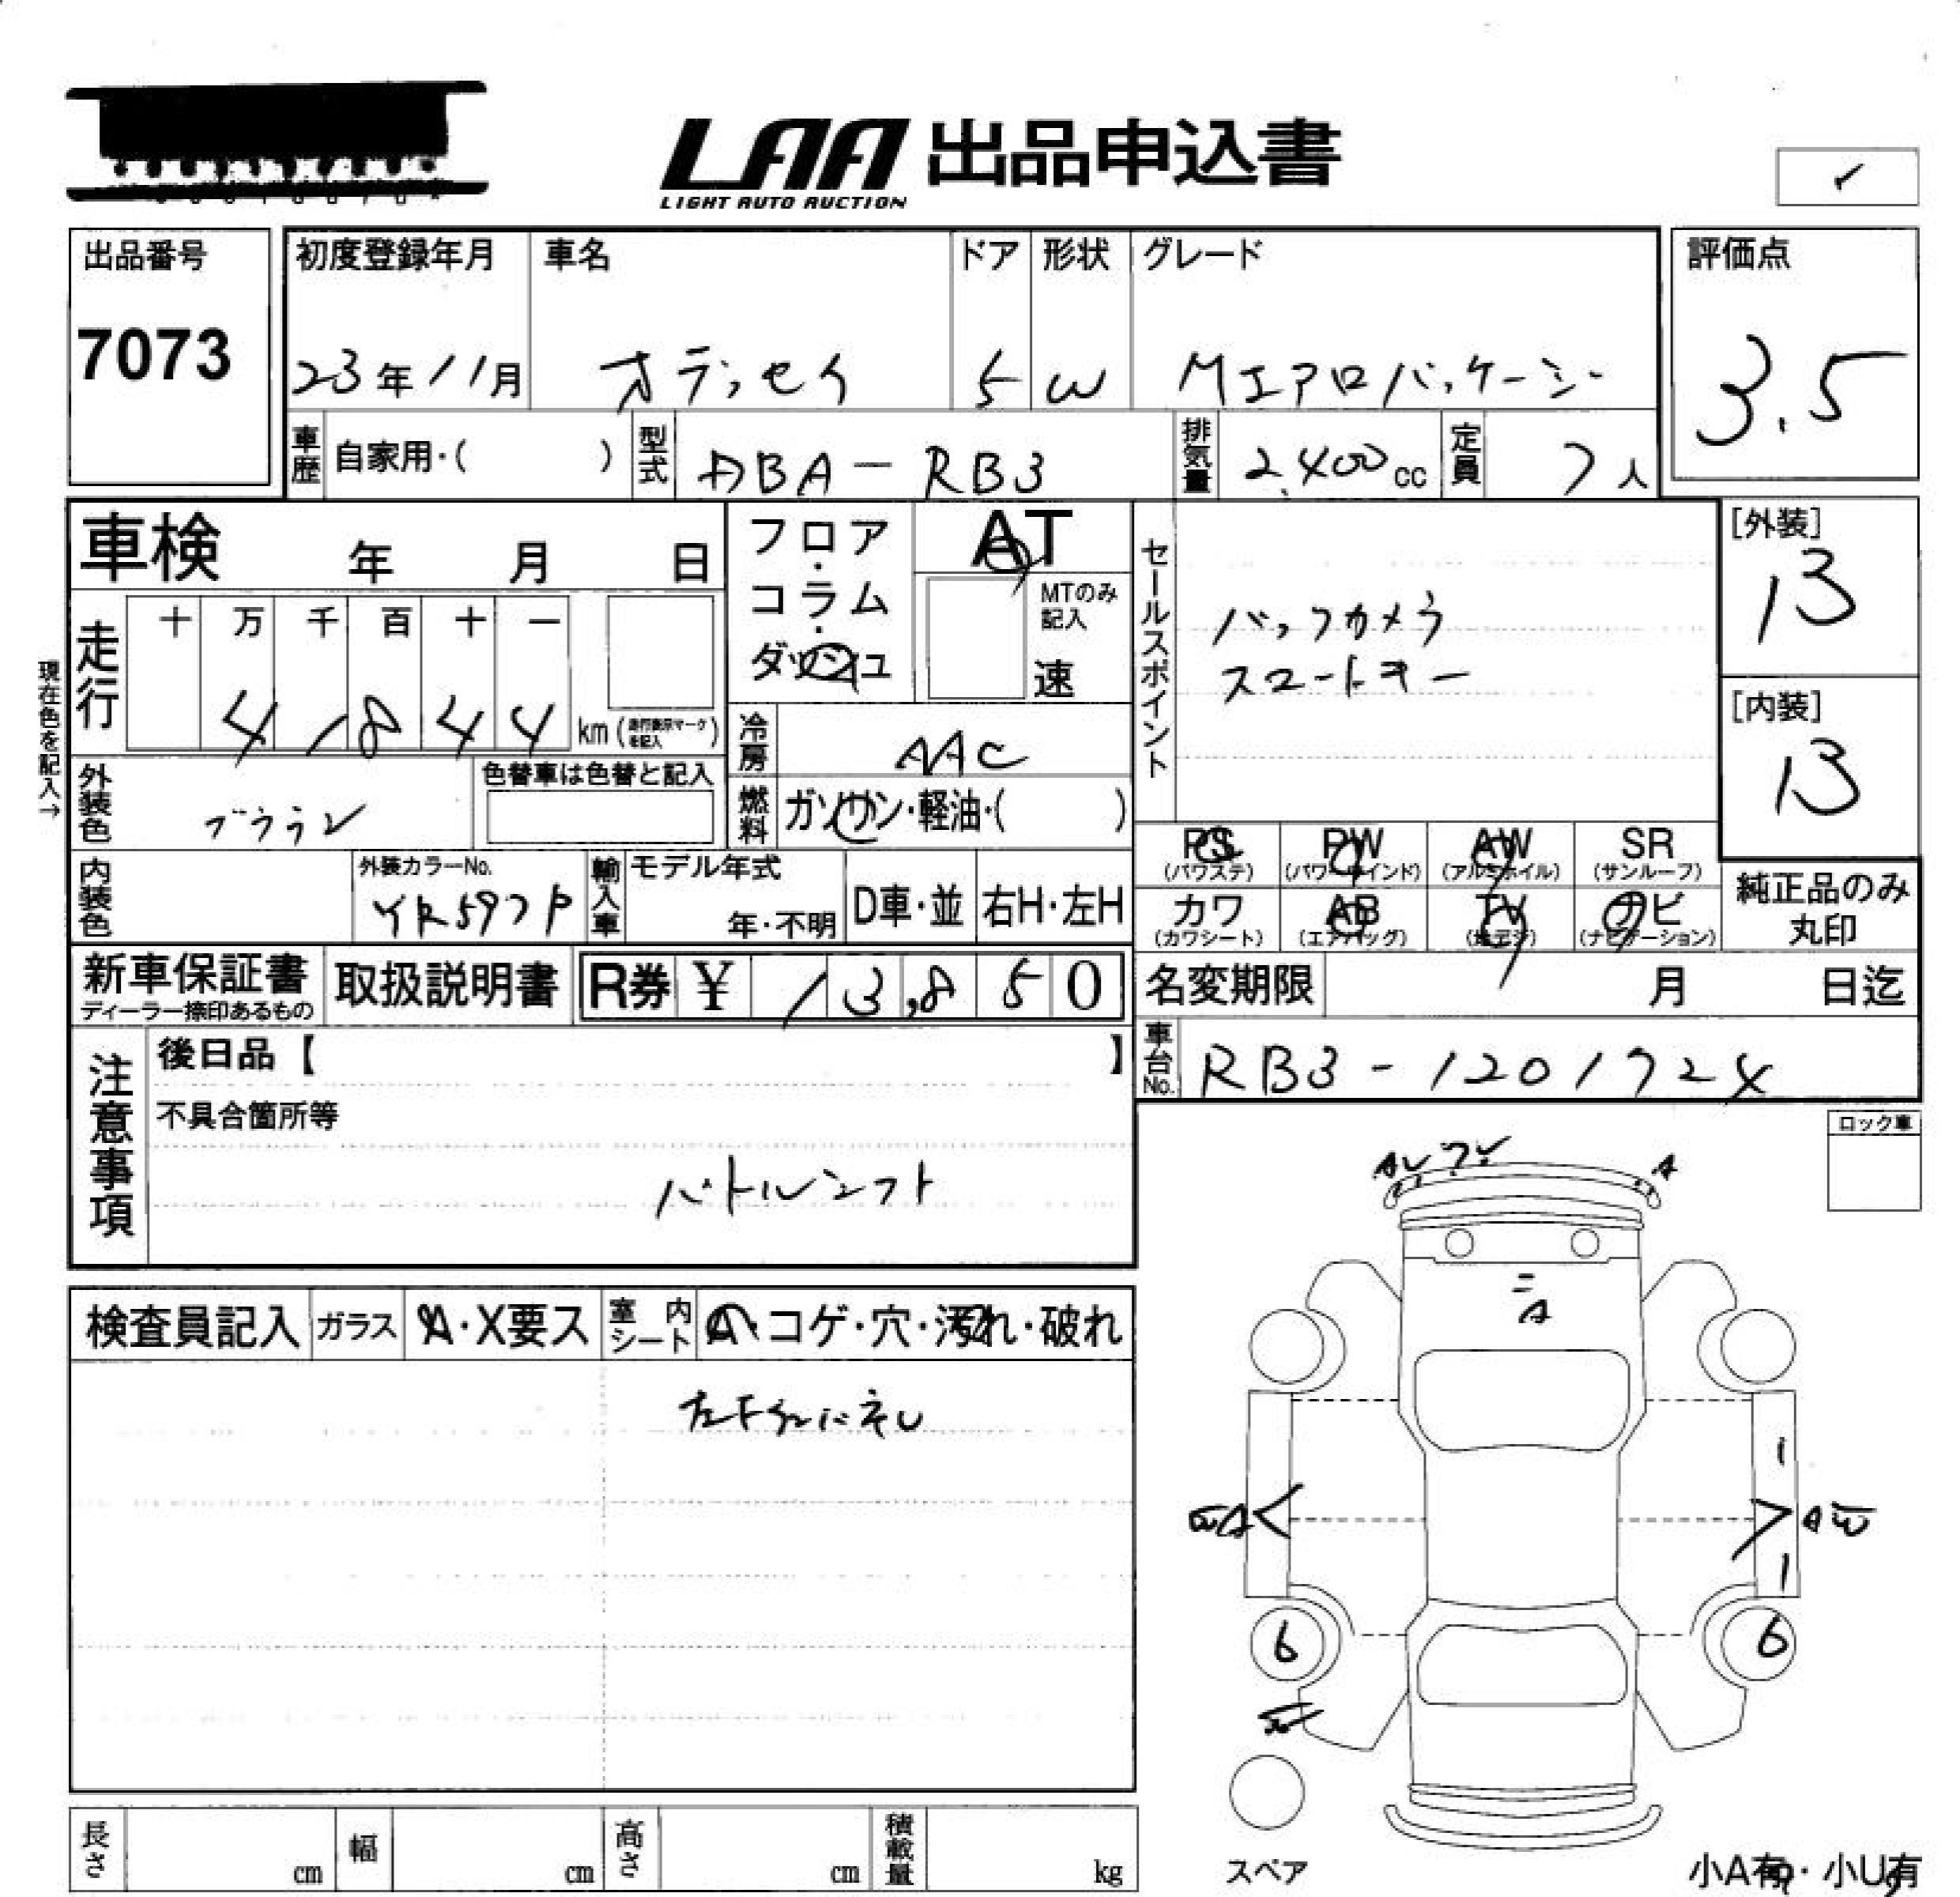 LAA 出品申込書
LIGHT AUTO AUCTION
出品番号
7073
初度登録年月
23年11月
車名
オデッセイ
ドア
5
形状
W
グレード
Mエアロパッケージ
評価点
3.5
車歴 自家用・( )
型式 DBA-RB3
排気量 2,400cc
定員 7人
車検 年 月 日
フロア・コラム・ダッシュ
AT
MTのみ記入
速
セールスポイント
バックカメラ
スマートキー
[外装]
13
[内装]
13
現在色を記入→
走行
十 万 千 百 十 一
4 1 8 4 4 km (走行表示マークを記入)
冷房 AAC
外装色 ブラウン
色替車は色替と記入
燃料 ガソリン・軽油・( )
PS (パワステ)
PW (パワーウインド)
AW (アルミホイル)
SR (サンルーフ)
内装色
外装カラーNo.
YR597P
輸入車
モデル年式
年・不明
D車・並
右H・左H
カワ (カワシート)
AB (エアバッグ)
TV (地デジ)
ナビ (ナビゲーション)
純正品のみ丸印
新車保証書
ディーラー捺印あるもの
取扱説明書
R券 ¥ 13,850
名変期限 月 日迄
車台No. RB3-1201724
注意事項
後日品【 】
不具合箇所等
パドルシフト
ロック車
検査員記入
ガラス A・X要ス
室内シート A・コゲ・穴・汚れ・破れ
A
A
A
A
A
6
6
スペア
長さ cm
幅 cm
高さ cm
積載量 kg
小A有・小U有